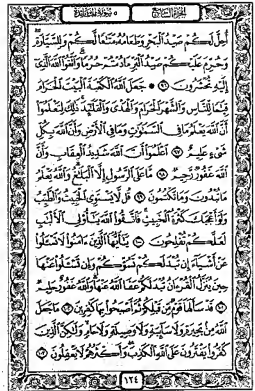 الجزء السابع ٥ سورة المائدة
أُحِلَّ لَكُمْ صَيْدُ الْبَحْرِ وَطَعَامُهُ مَتَاعًا لَّكُمْ وَلِلسَّيَّارَةِ
وَحُرِّمَ عَلَيْكُمْ صَيْدُ الْبَرِّ مَا دُمْتُمْ حُرُمًا وَاتَّقُوا اللَّهَ الَّذِي
إِلَيْهِ تُحْشَرُونَ ﴿٩٦﴾ جَعَلَ اللَّهُ الْكَعْبَةَ الْبَيْتَ الْحَرَامَ
قِيَامًا لِّلنَّاسِ وَالشَّهْرَ الْحَرَامَ وَالْهَدْيَ وَالْقَلَائِدَ ذَٰلِكَ لِتَعْلَمُوا
أَنَّ اللَّهَ يَعْلَمُ مَا فِي السَّمَاوَاتِ وَمَا فِي الْأَرْضِ وَأَنَّ اللَّهَ بِكُلِّ
شَيْءٍ عَلِيمٌ ﴿٩٧﴾ اعْلَمُوا أَنَّ اللَّهَ شَدِيدُ الْعِقَابِ وَأَنَّ
اللَّهَ غَفُورٌ رَّحِيمٌ ﴿٩٨﴾ مَّا عَلَى الرَّسُولِ إِلَّا الْبَلَاغُ وَاللَّهُ يَعْلَمُ
مَا تُبْدُونَ وَمَا تَكْتُمُونَ ﴿٩٩﴾ قُل لَّا يَسْتَوِي الْخَبِيثُ وَالطَّيِّبُ
وَلَوْ أَعْجَبَكَ كَثْرَةُ الْخَبِيثِ فَاتَّقُوا اللَّهَ يَا أُولِي الْأَلْبَابِ
لَعَلَّكُمْ تُفْلِحُونَ ﴿١٠٠﴾ يَا أَيُّهَا الَّذِينَ آمَنُوا لَا تَسْأَلُوا
عَنْ أَشْيَاءَ إِن تُبْدَ لَكُمْ تَسُؤْكُمْ وَإِن تَسْأَلُوا عَنْهَا
حِينَ يُنَزَّلُ الْقُرْآنُ تُبْدَ لَكُمْ عَفَا اللَّهُ عَنْهَا وَاللَّهُ غَفُورٌ حَلِيمٌ
﴿١٠١﴾ قَدْ سَأَلَهَا قَوْمٌ مِّن قَبْلِكُمْ ثُمَّ أَصْبَحُوا بِهَا كَافِرِينَ ﴿١٠٢﴾ مَا جَعَلَ
اللَّهُ مِن بَحِيرَةٍ وَلَا سَائِبَةٍ وَلَا وَصِيلَةٍ وَلَا حَامٍ وَلَٰكِنَّ الَّذِينَ
كَفَرُوا يَفْتَرُونَ عَلَى اللَّهِ الْكَذِبَ وَأَكْثَرُهُمْ لَا يَعْقِلُونَ ﴿١٠٣﴾
١٢٤